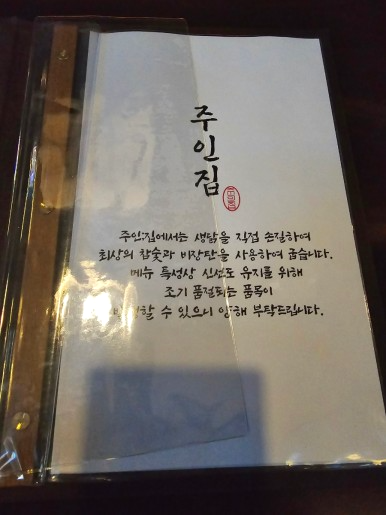 주인집
주인집에서는 생닭을 직접 손질하여
최상의 참숯과 비장탄을 사용하여 굽습니다.
메뉴 특성상 신선도 유지를 위해
조기 품절되는 품목이
할 수 있으니 양해 부탁드립니다.